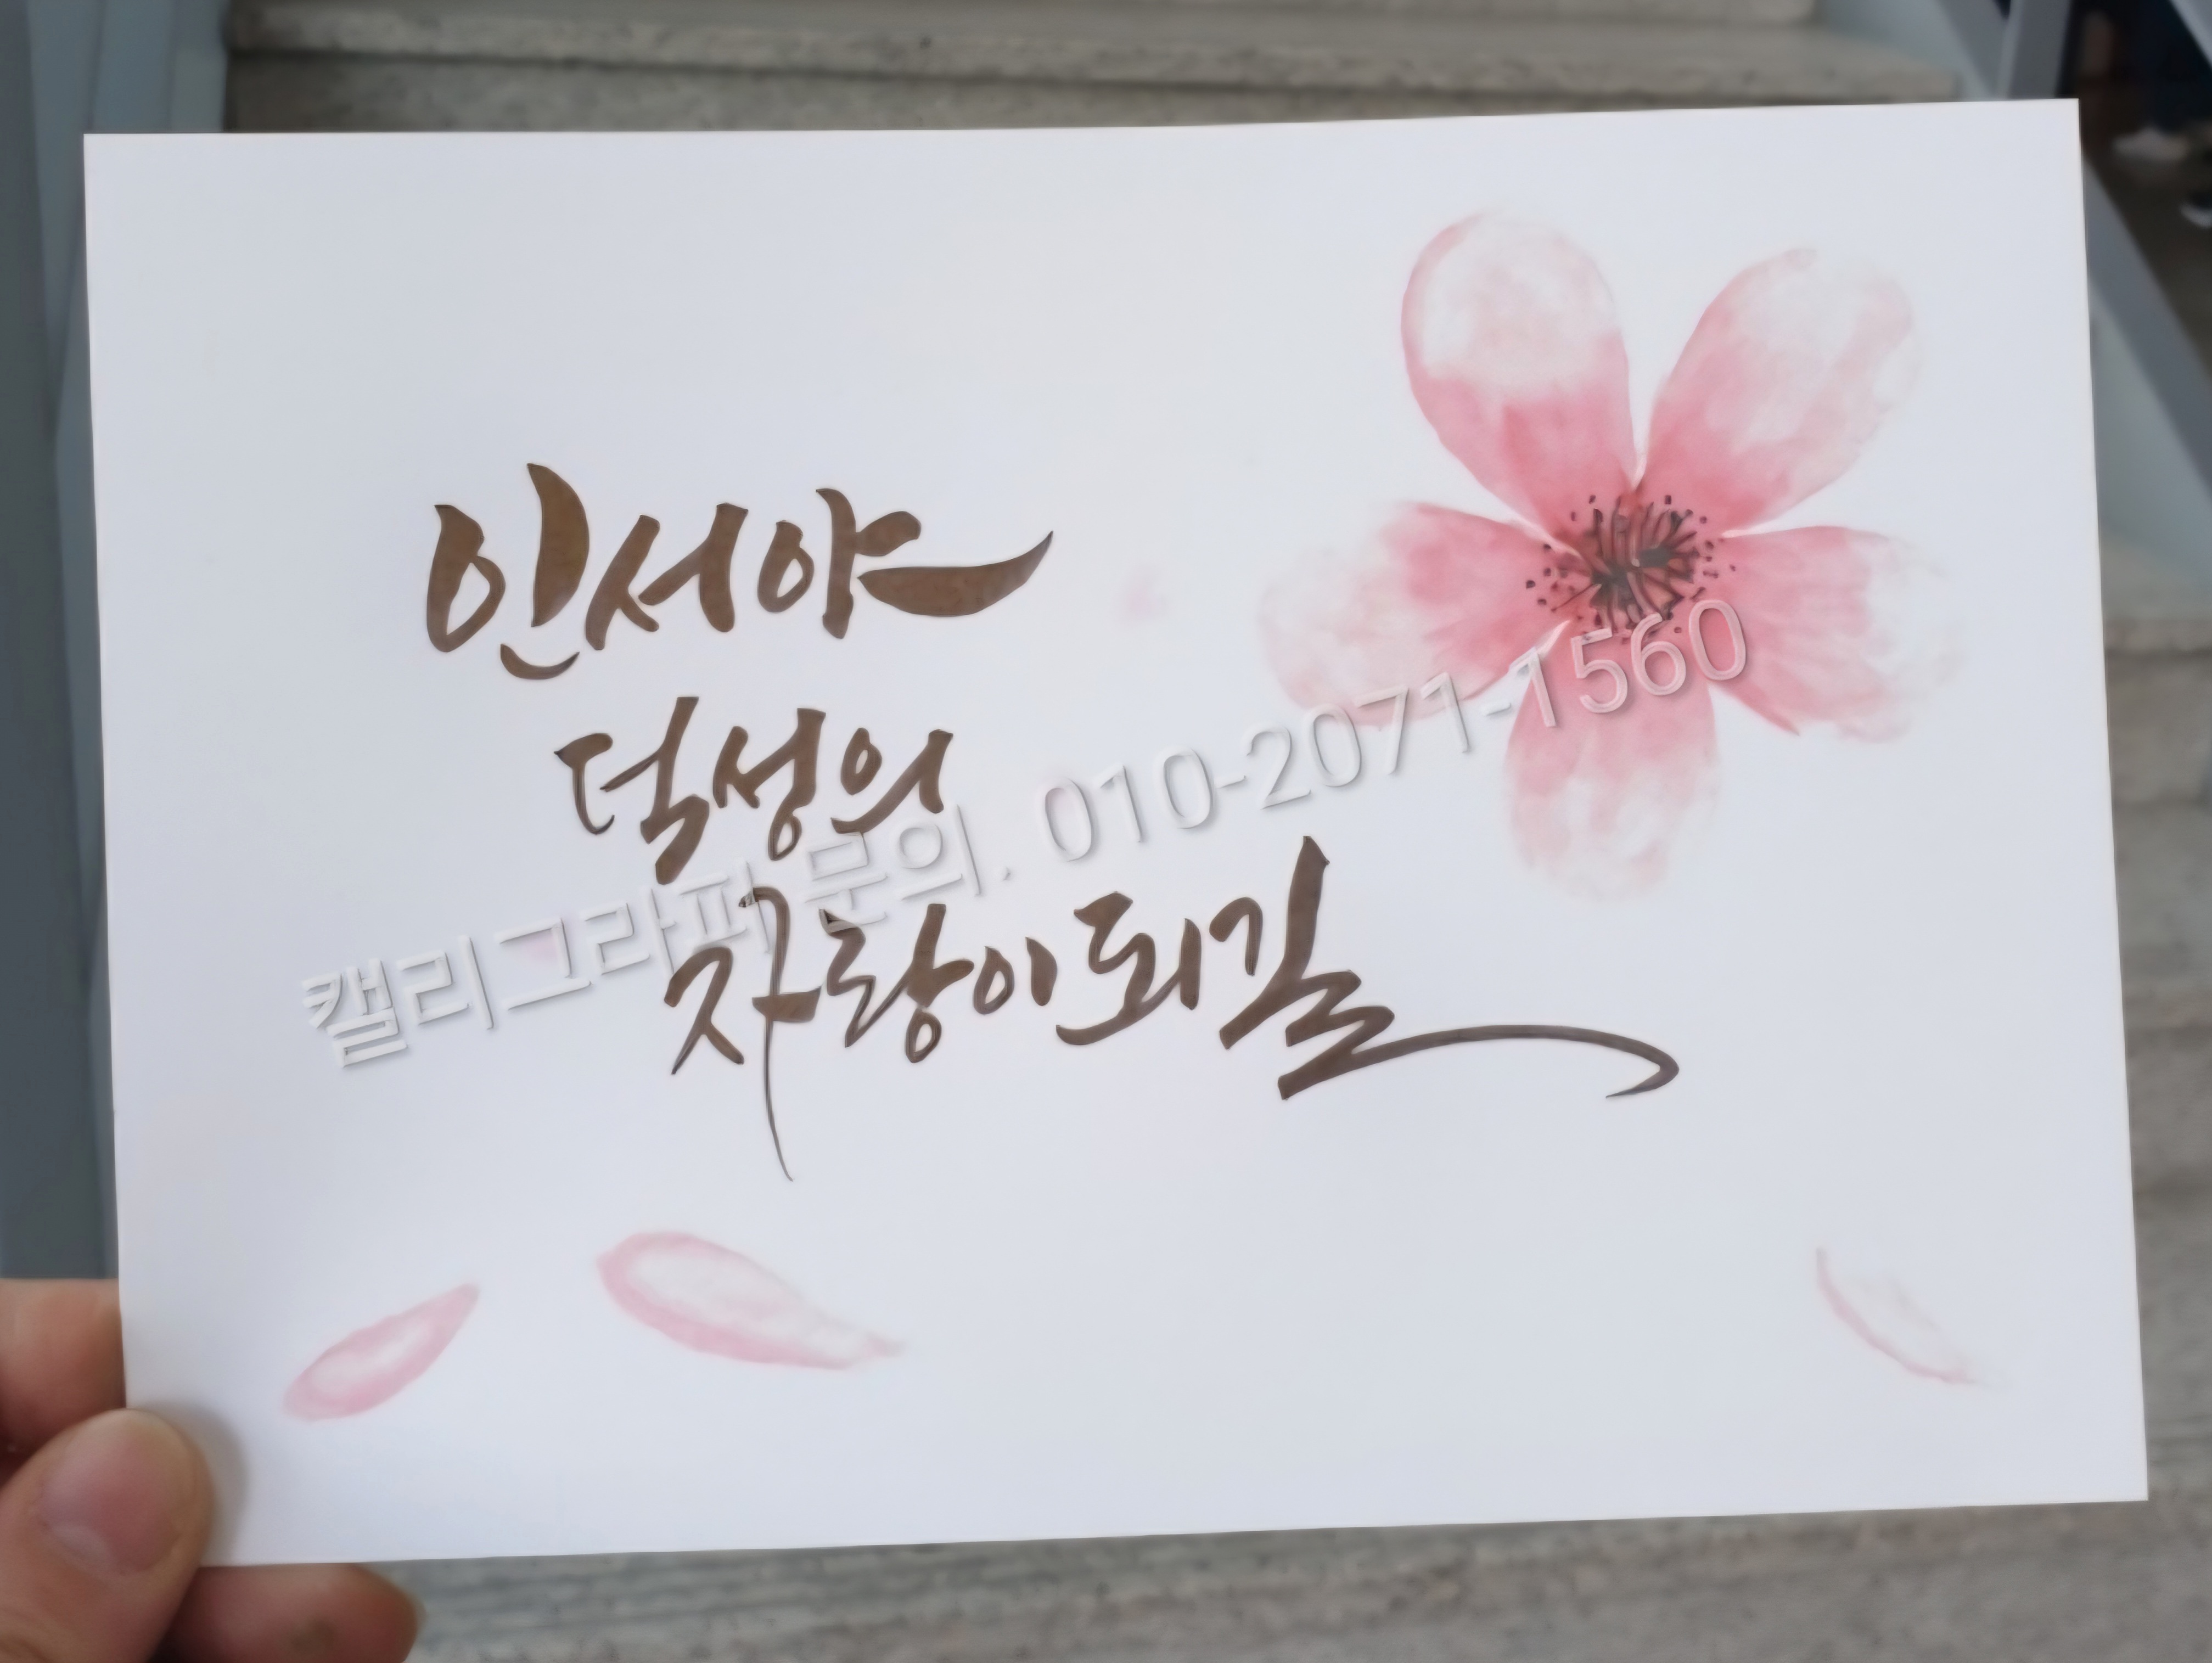 인서야
덕성의
자랑이 되길
캘리그라피 문의. 010-2071-1560